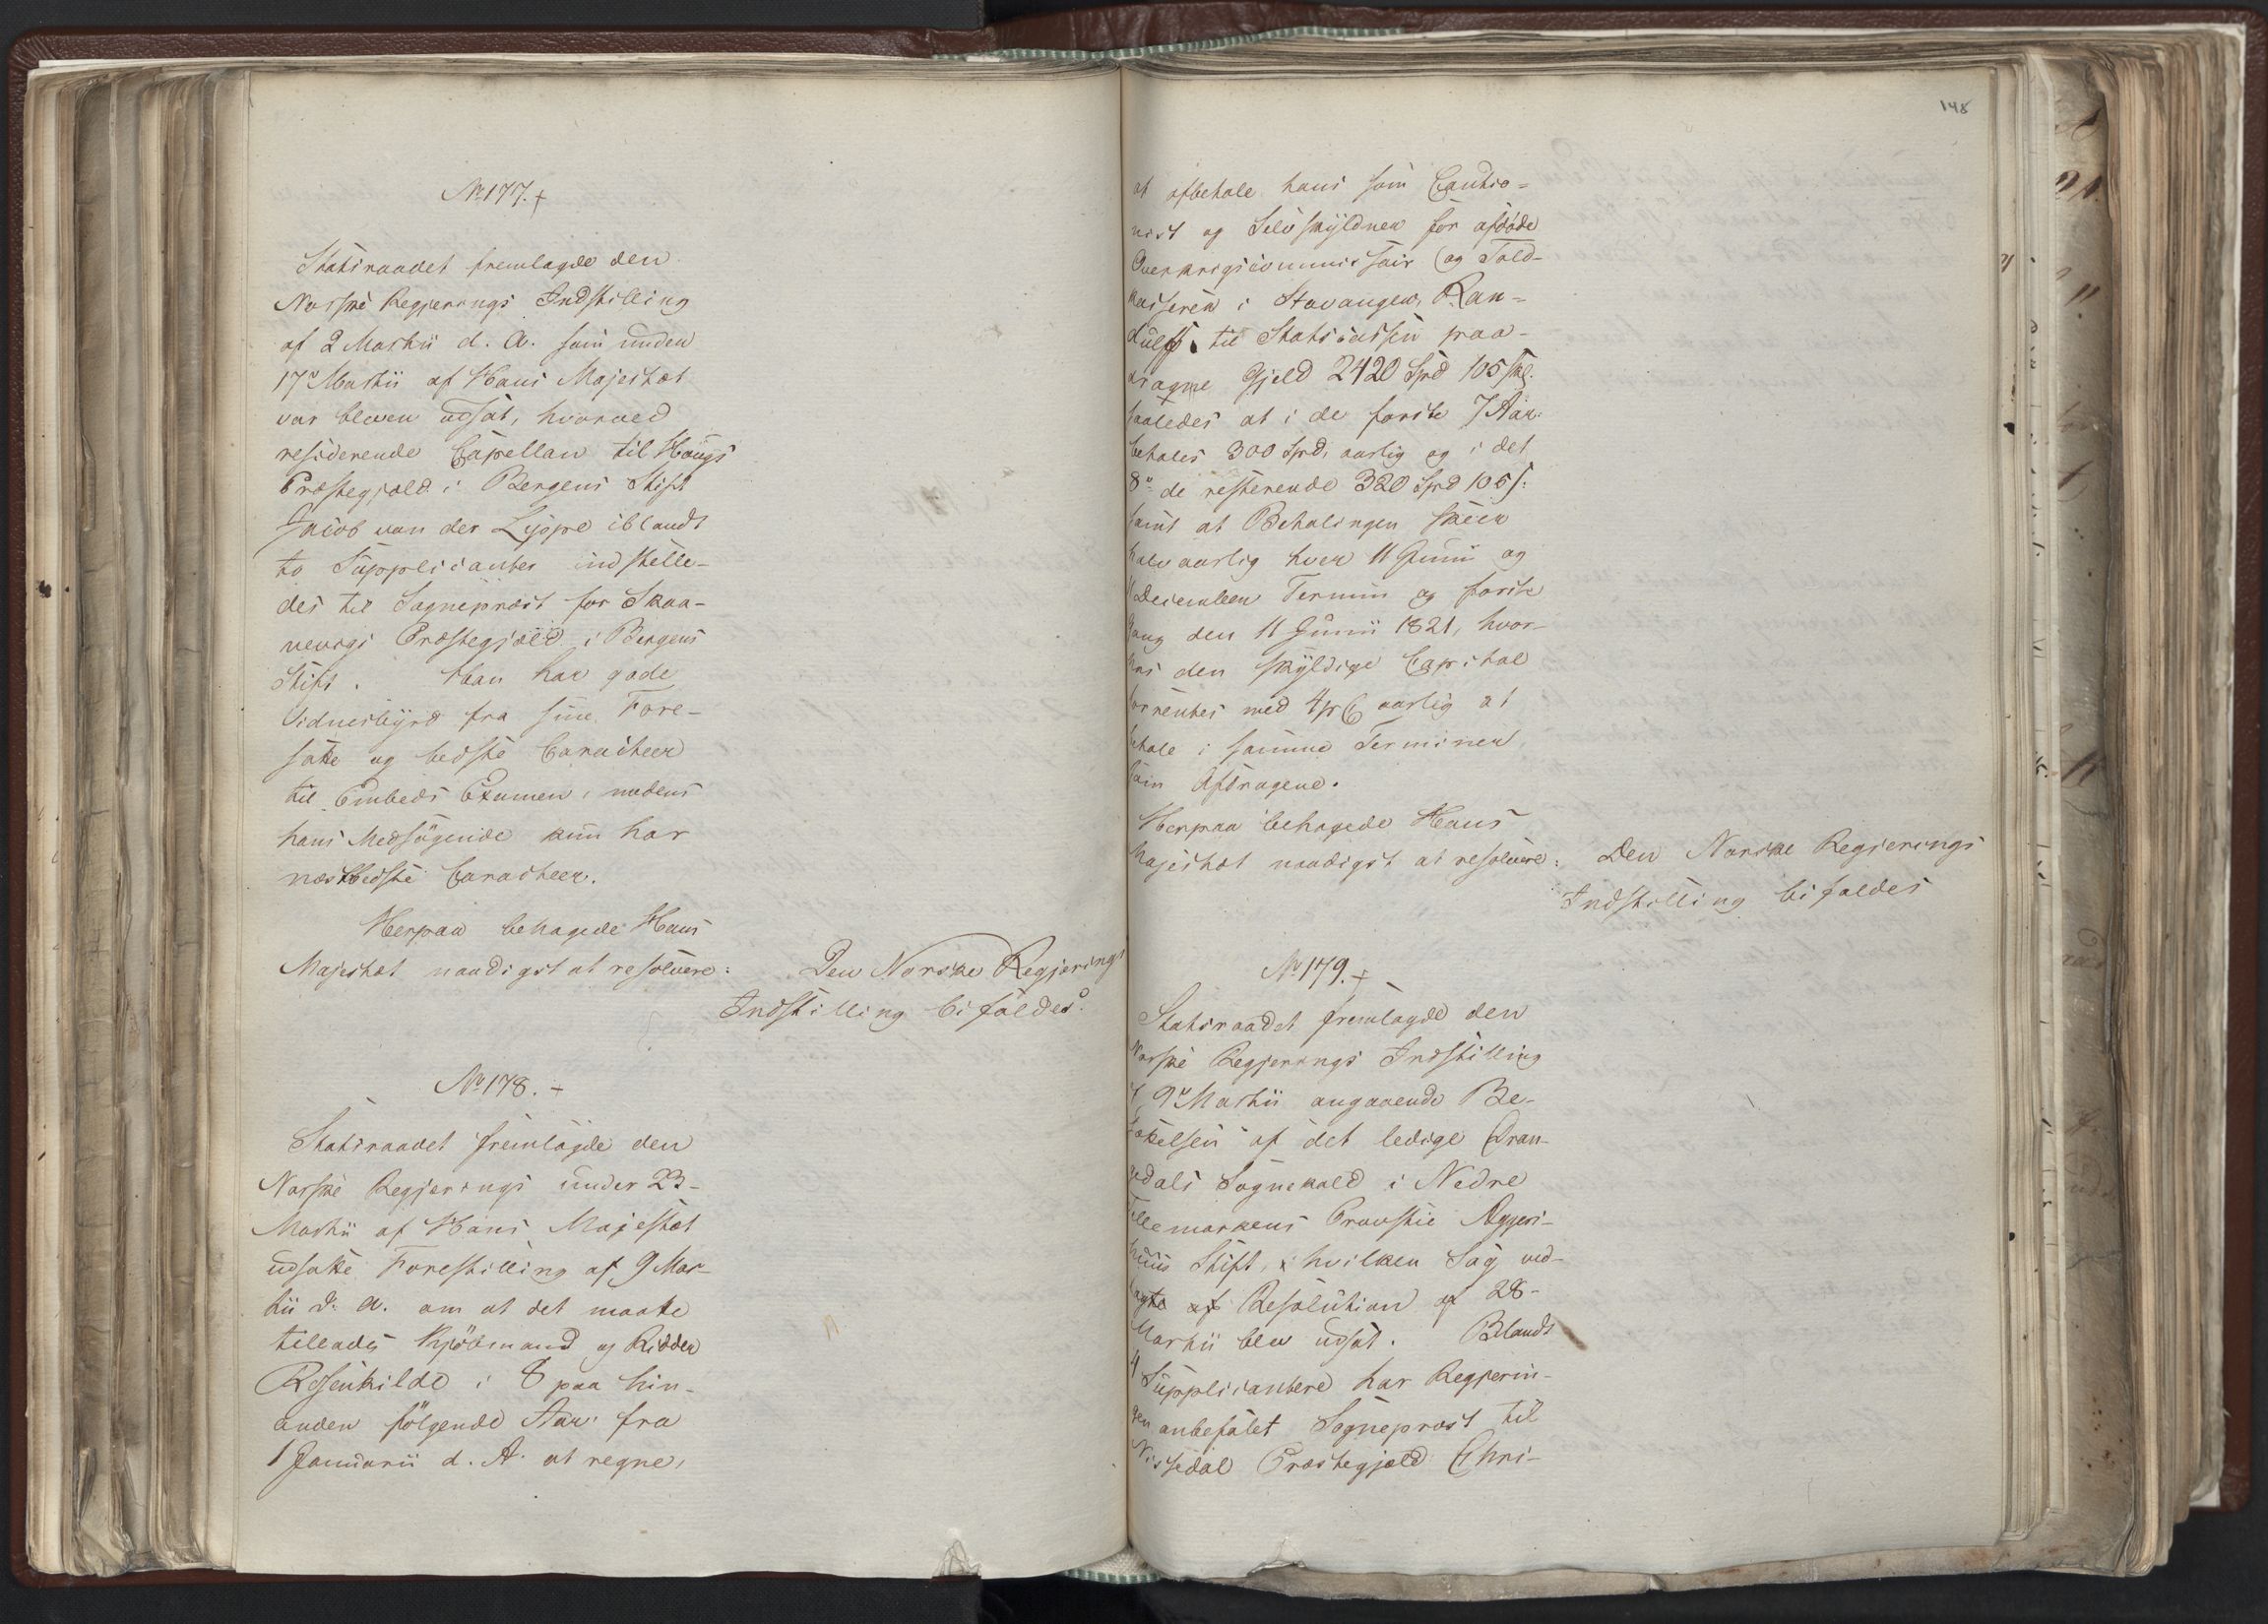 No 177. +
Statsraadet fremlagde den
Norske Regjerings Indstilling
af 2 Martii d. A. som under
17de Martii af Hans Majestæt
var bleven udsat, hvorved
residerende Capellan til Haugs
Præstegjæld i Bergens Stift
Jacob von der Lippe iblandt
to Supplicanter indstille-
des til Sognepræst for Skaa-
nevigs Præstegjæld i Bergens
Stift. Han har gode
Vidnesbyrd fra sine Fore-
satte og bedste Caracteer
til Embeds Examen, medens
hans Medsögende kun har
næstbedste Caracteer.
Herpaa behagede Hans
Majestæt naadigst at resolvere:
Den Norske Regjerings
Indstilling bifaldes.
No 178. +
Statsraadet fremlagde den
Norske Regjerings under 23-
Martii af Hans Majestæt
udsatte Forestilling af 9 Mar-
tii d. A. om at det maatte
tillades Kjöbmand og Ridder
Rosenkilde i 8 paa hin-
anden fölgende Aar fra
1 Januarii d. A. at regne,
148
at afbetale hans som Cautio-
nist og Selvskyldner for afdöde
Overkrigscommissair og Told-
kasserer i Stavanger, Ran-
dulff, til Statscassen paa-
dragne Gjeld 2420 Spd 105 skl.
saaledes at i de förste 7 Aar
betales 300 Spd. aarlig og i det
8de de resterende 320 Spd 105 s.
samt at Betalingen skeer
halvaarlig hver 11 Junii og
11 December Termin og förste
Gang den 11 Junii 1821, hvor-
hos den skyldige Capital
forrentes med 4 pC aarlig at
betale i samme Terminer
som Afdragene.
Herpaa behagede Hans
Majestæt naadigst at resolvere:
Den Norske Regjerings
Indstilling bifaldes
No 179. +
Statsraadet fremlagde den
Norske Regjerings Indstilling
af 9de Martii angaaende Be-
sættelsen af det ledige Dran-
gedals Sognekald i Nedre
Tellemarkens Provstie Aggers-
huus Stift, i hvilken Sag ved-
tagte af Resolution af 28-
Martii blev udsat. Blandt
4 Supplicantere har Regjerin-
gen anbefalet Sognepræst til
Nissedal Præstegjæld Chri-